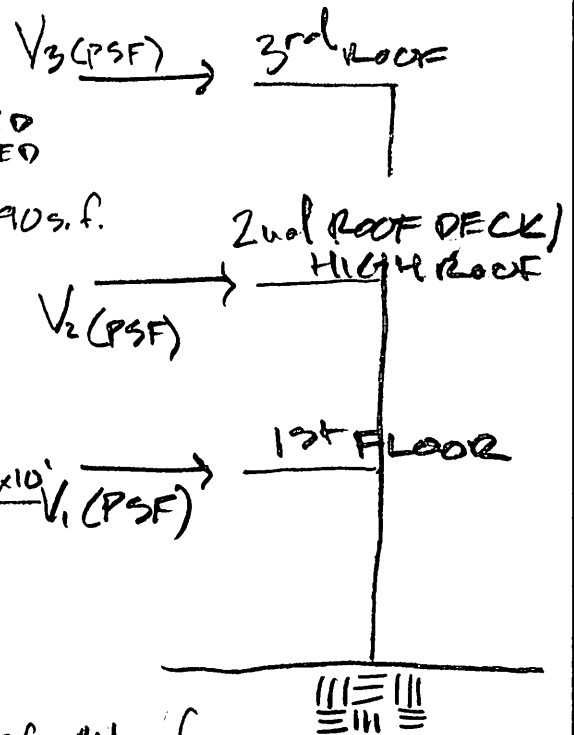 V3 (PSF) 3rd ROOF
ED
90 s.f.
2nd ROOF DECK/
HIGH ROOF
V2 (PSF)
1st FLOOR
x10'
V1 (PSF)